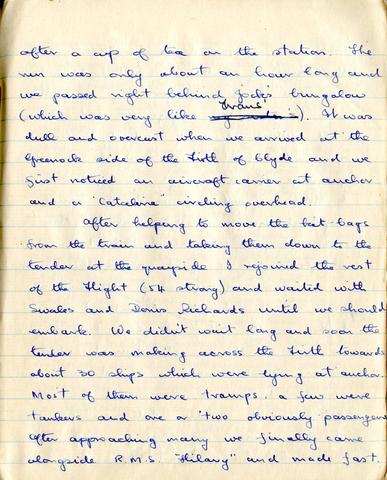 after a cup of tea on the station. The
run was only about an hour long and
we passed right behind Jock's bungalow
(which was very like Evans'). It was
dull and overcast when we arrived at the
Greenock side of the Firth of Clyde and we
first noticed an aircraft carrier at anchor
and a "Catalina" circling overhead.
After helping to move the kit-bags
from the train and taking them down to the
tender at the quayside I rejoined the rest
of the Flight (54 strong) and waited with
Swales and Denis Richards until we should
embark. We didn't wait long and soon the
tender was making across the Firth towards
about 30 ships which were lying at anchor.
Most of them were tramps, a few were
tankers and one or two obviously passengers
After approaching many we finally came
alongside R.M.S. "Hilary" and made fast.